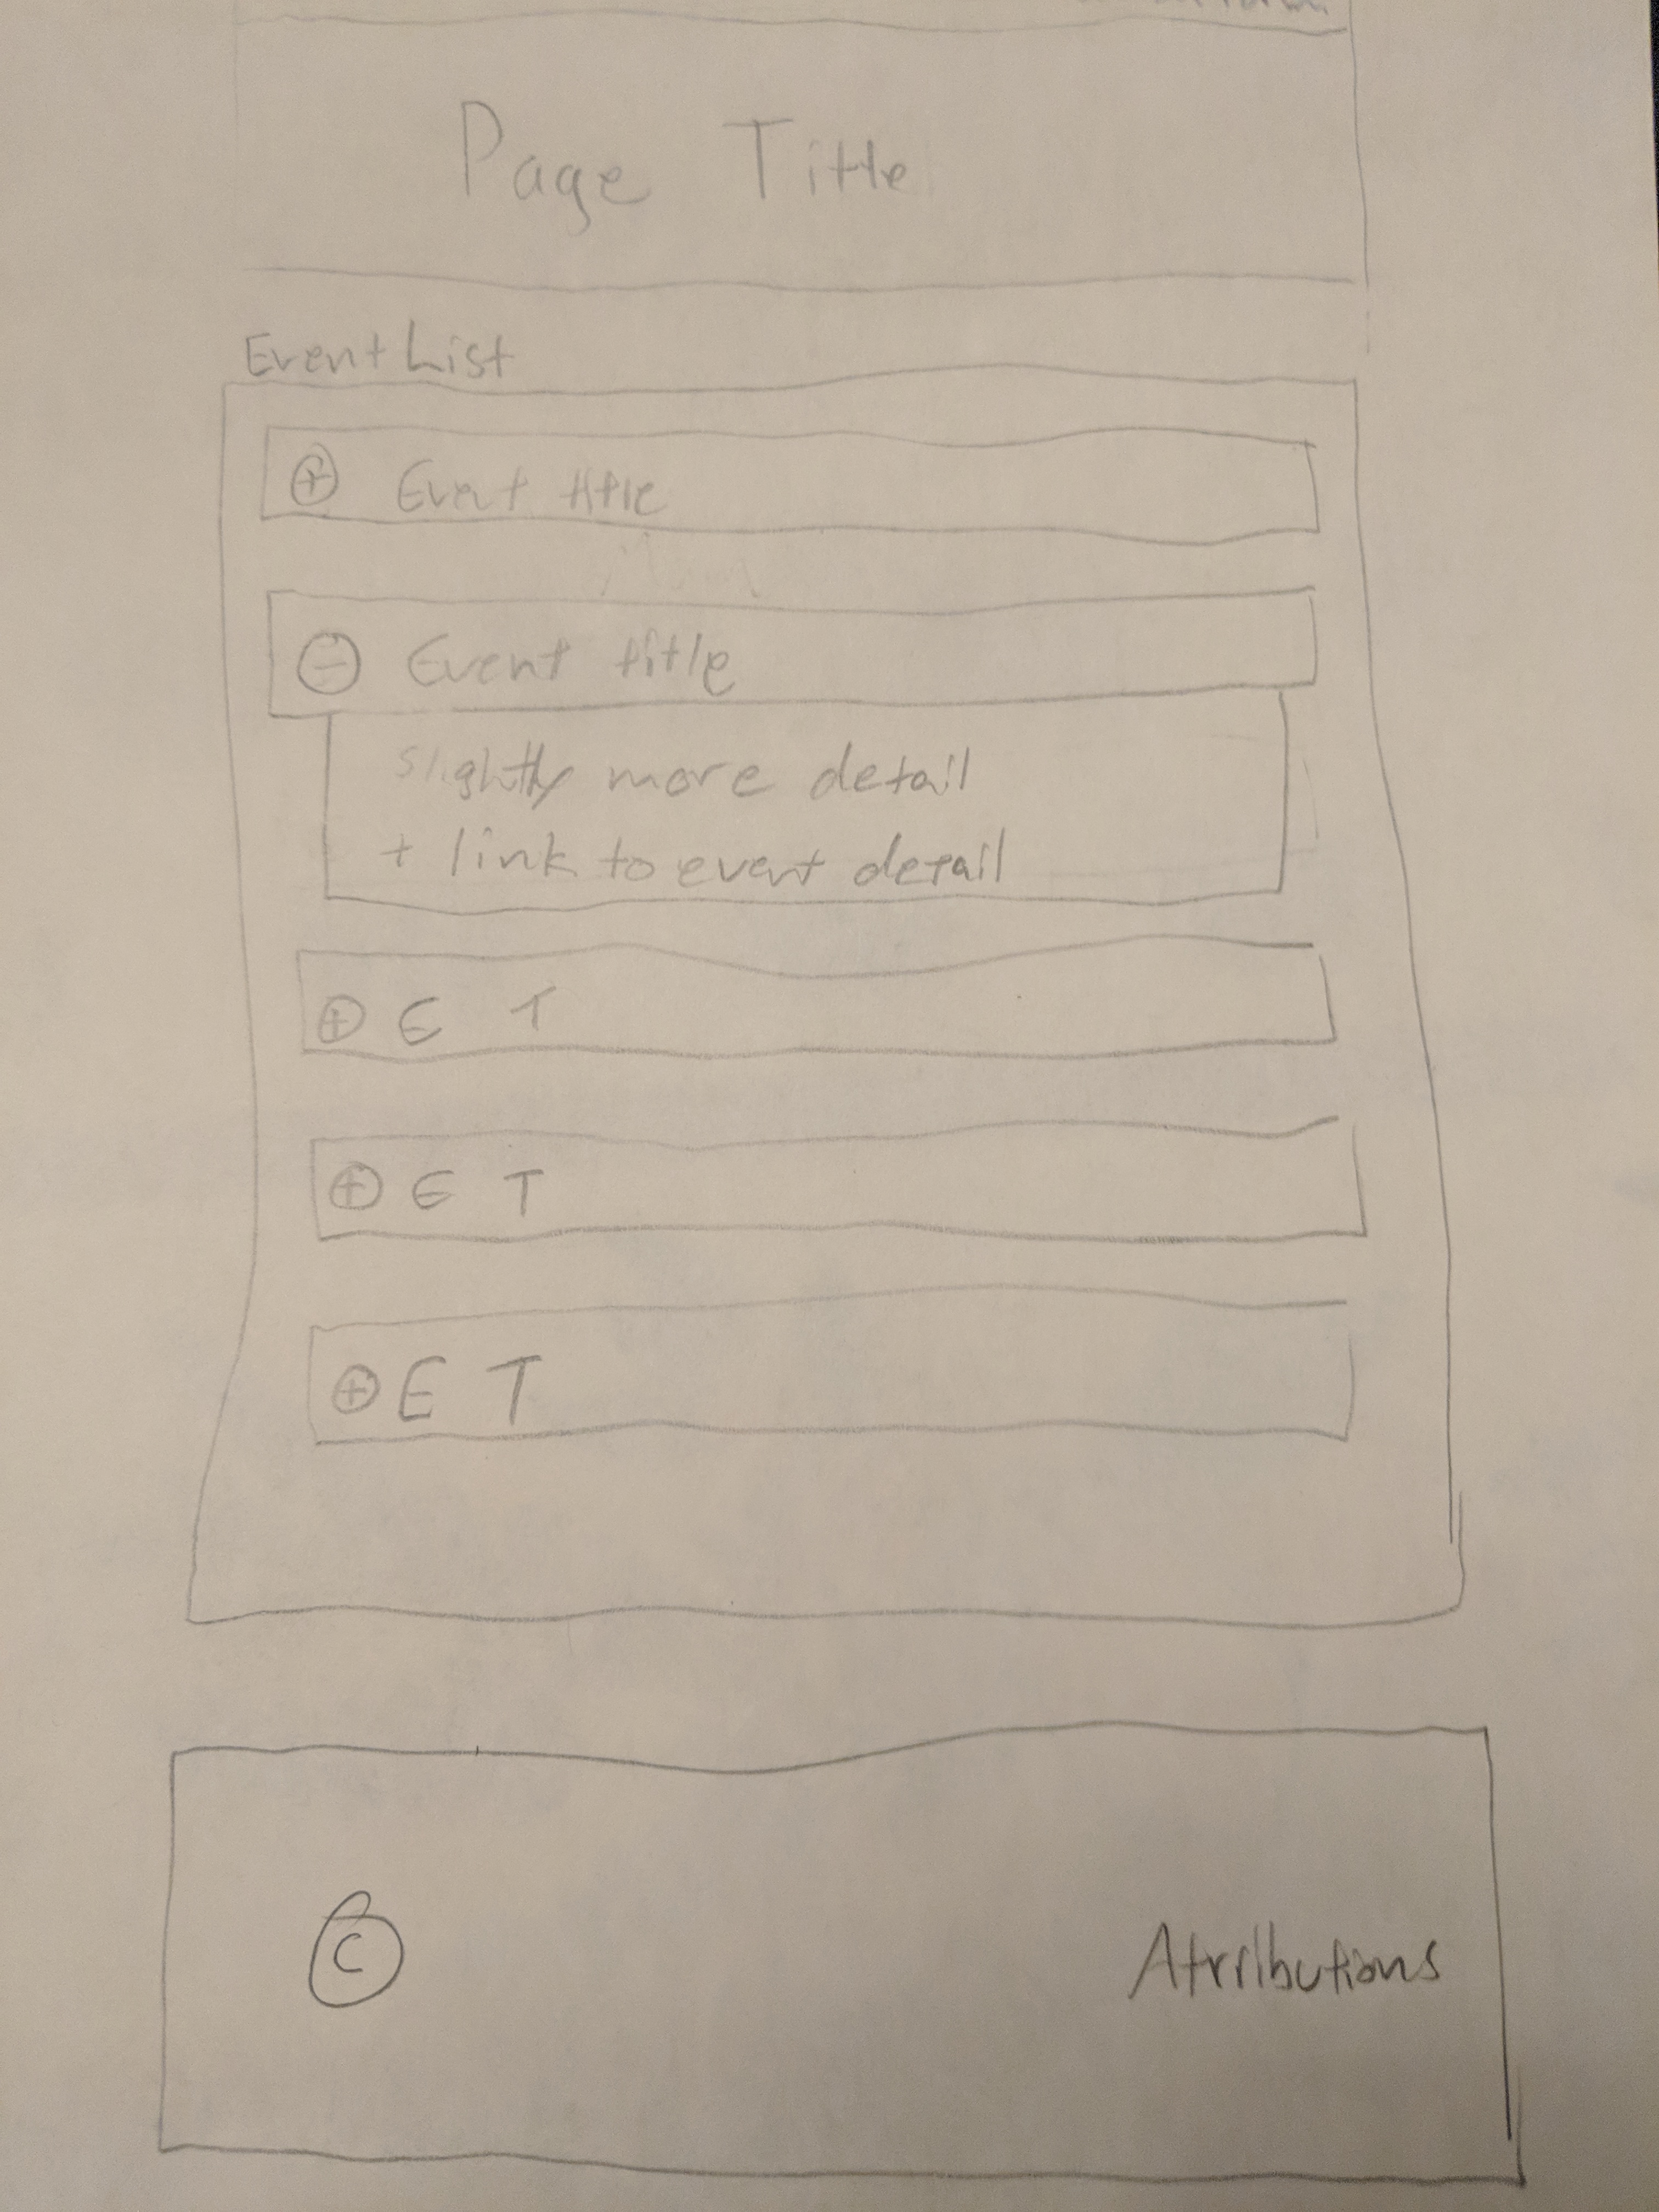 Page Title
Event List
⊕ Event title
⊖ Event title
slightly more detail
+ link to event detail
⊕ E T
⊕ E T
⊕ E T
© Atrributions